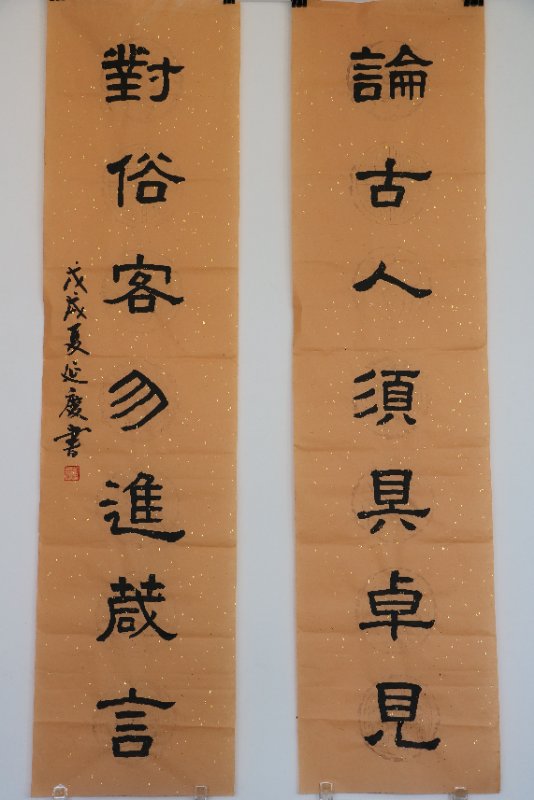 論古人須具卓見
對俗客勿進箴言
戊戌夏延慶書